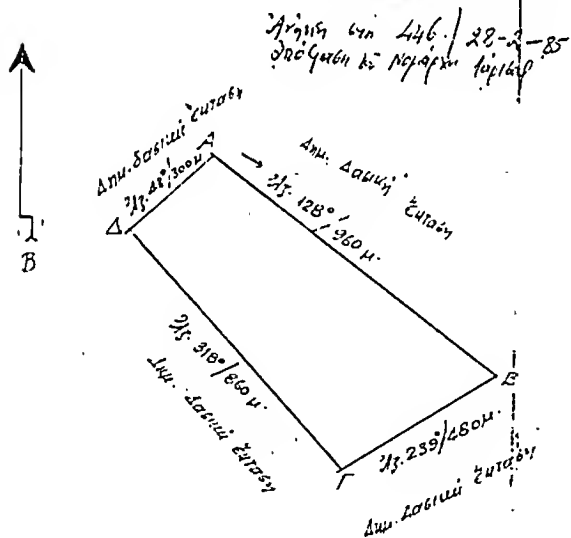 Ἀνήκει στή 446/28-2-85
ἀπόφαση κ. Νομάρχη
Δημ. δασική ἔκταση
Ἀζ. 48°/300μ
Α
Δημ. Δασική Ἔκταση
Ἀζ. 128°/960μ.
Δ
Β
Ἀζ. 318°/860μ.
Δημ. Δασική Ἔκταση
Β
Ἀζ. 239°/480μ.
Γ
Δημ. Δασική Ἔκταση